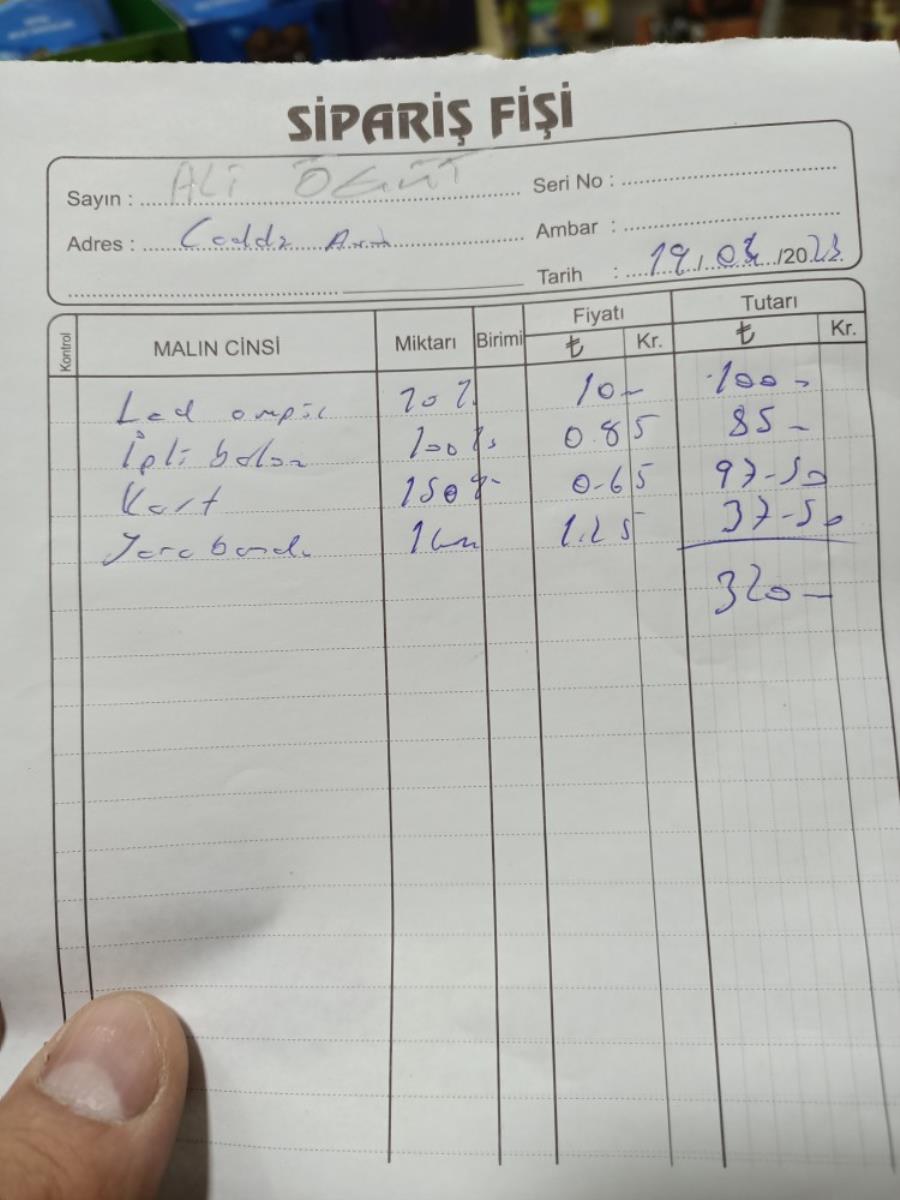 SİPARİŞ FİŞİ
Sayın : ALİ ÖĞÜT
Seri No :
Adres : Cadde
Ambar :
Tarih : 19/03/2023
Kontrol
MALIN CİNSİ
Miktarı
Birimi
Fiyatı
₺
Kr.
Tutarı
₺
Kr.
Led 10 10- 100-
İpli balon 100 0.85 85-
Kart 150 0-65 97-50
Yara bandı 1.25 37-50
320-